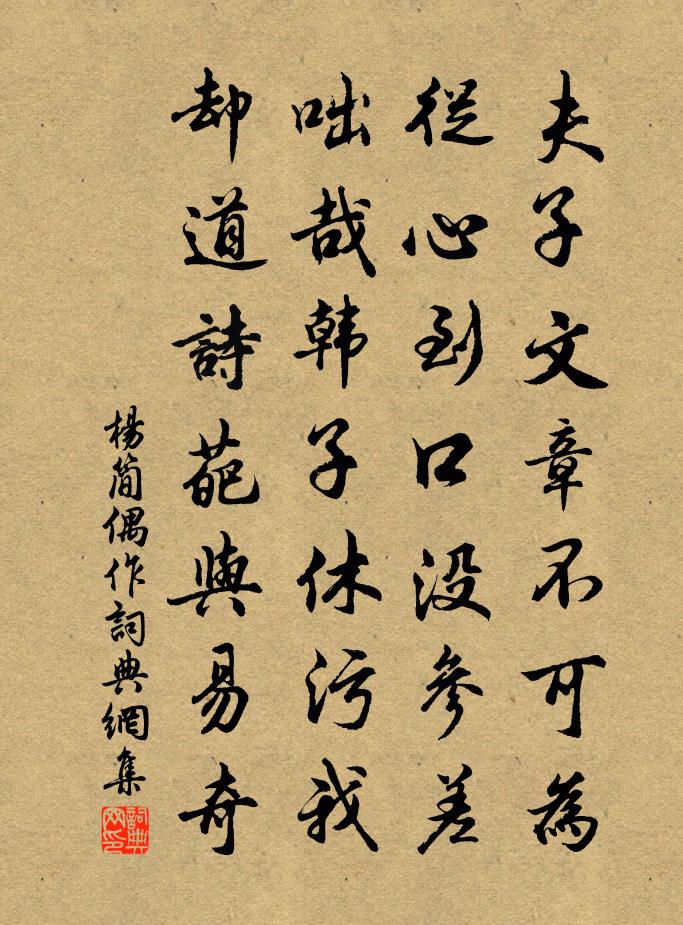 夫子文章不可為
從心到口没參差
咄哉韩子休污我
却道詩葩與易奇
楊简偶作詞典網集
詞典网印